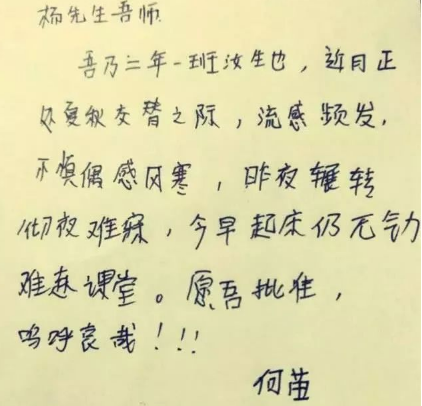 杨先生吾师
吾乃三年一班汝生也，近日正
处夏秋交替之际，流感频发，
不慎偶感风寒，昨夜辗转
彻夜难寐，今早起床仍无气力
难赴课堂。愿吾批准，
呜呼哀哉！!!
何苗